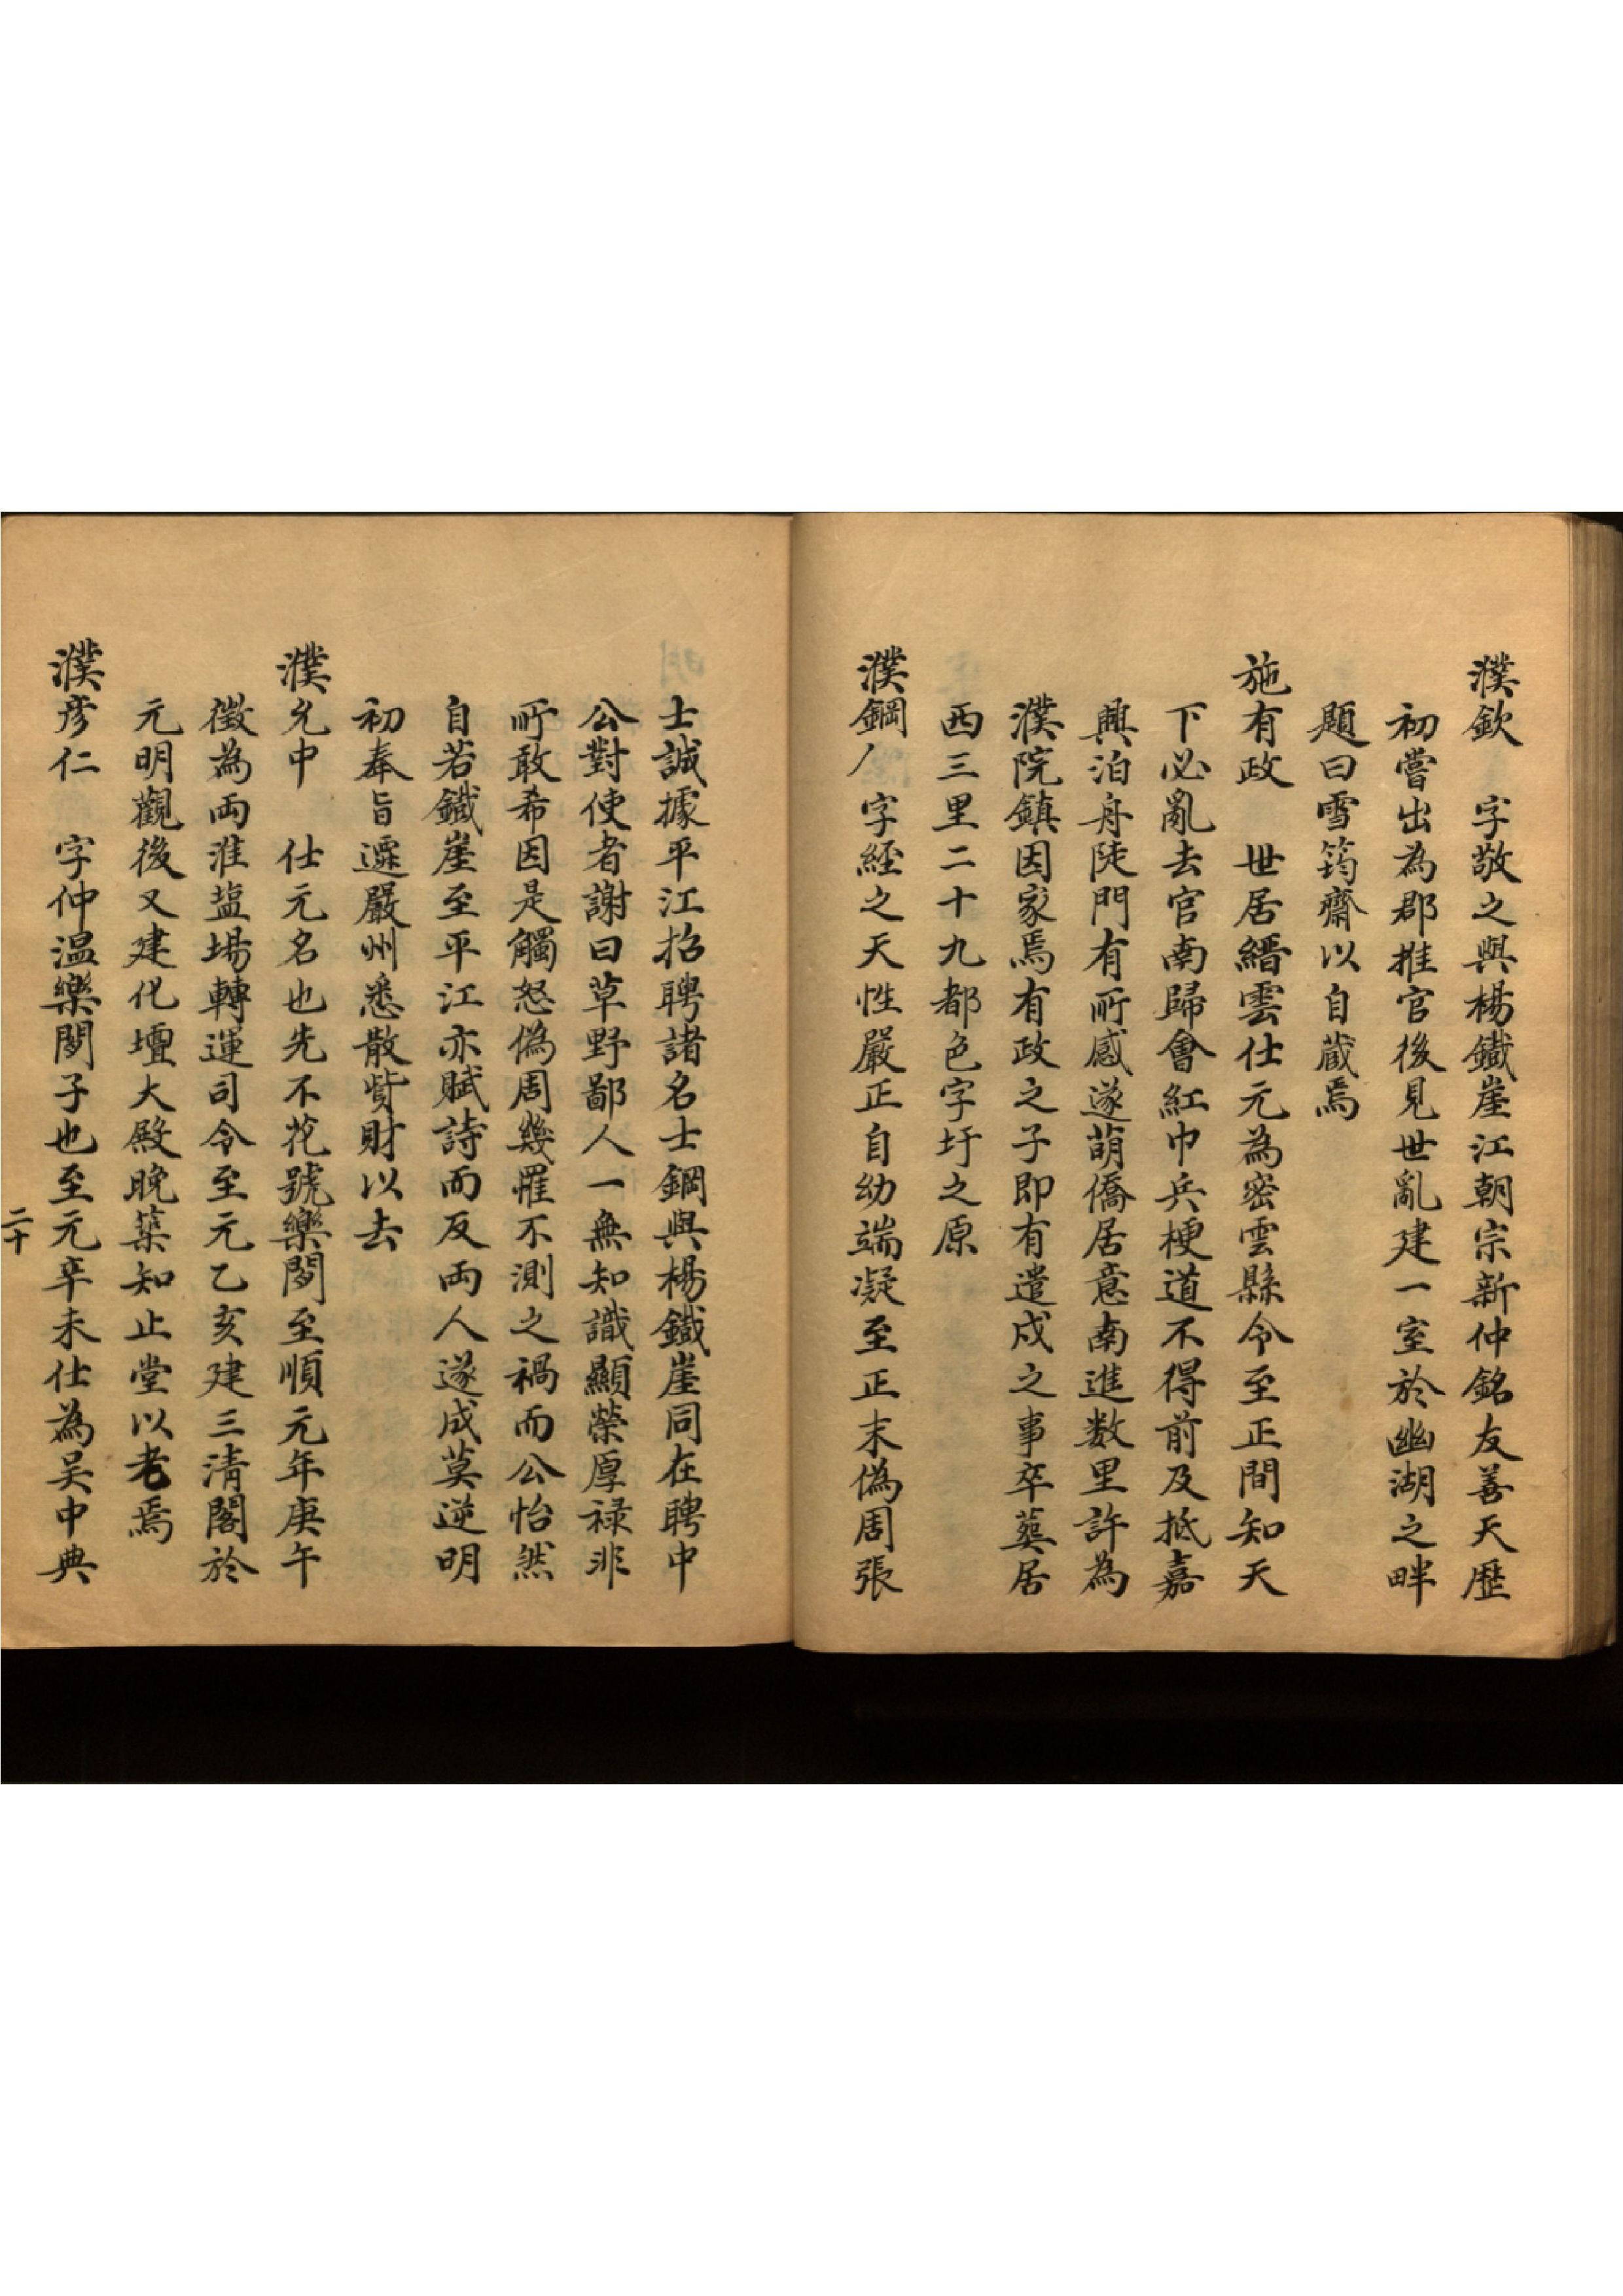 濮欽　字敬之與楊鐵崖江朝宗新仲銘友善天歷
初嘗出為郡推官後見世亂建一室於幽湖之畔
題曰雪筠齋以自蔵焉
施有政　世居縉雲仕元為密雲縣令至正間知天
下必亂去官南歸會紅巾兵梗道不得前及抵嘉
興泊舟陡門有所感遂萌僑居意南進数里許為
濮院鎮因家焉有政之子即有遣戍之事卒葬居
西三里二十九都色字圩之原
濮鋼　字經之天性嚴正自幼端凝至正末偽周張
士誠據平江招聘諸名士鋼與楊鐵崖同在聘中
公對使者謝曰草野鄙人一無知識顯榮厚禄非
所敢希因是觸怒偽周幾罹不測之禍而公怡然
自若鐵崖至平江亦賦詩而反両人遂成莫逆明
初奉旨遷嚴州悉散貲財以去
濮允中　仕元名也先不花號樂閒至順元年庚午
徵為両淮塩場轉運司令至元乙亥建三清閣於
元明觀後又建化壇大殿晚築知止堂以老焉
濮彦仁　字仲温樂閒子也至元辛未仕為吴中典
二十